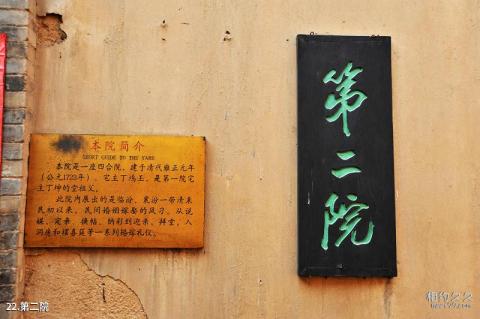 第二院
本院简介
SHORT GUIDE TO THE YARD
本院是一座四合院，建于清代雍正元年
（公元1723年）。它主丁鸿玉，是第一院宅
主丁坤的堂祖父。
此院内展出的是临汾、襄汾一带清末
民初以来，民间婚姻嫁娶的风习。从说
媒、定亲、换帖、纳彩到迎亲、拜堂、入
洞房和摆喜筵等一系列婚嫁礼仪。
22.第二院